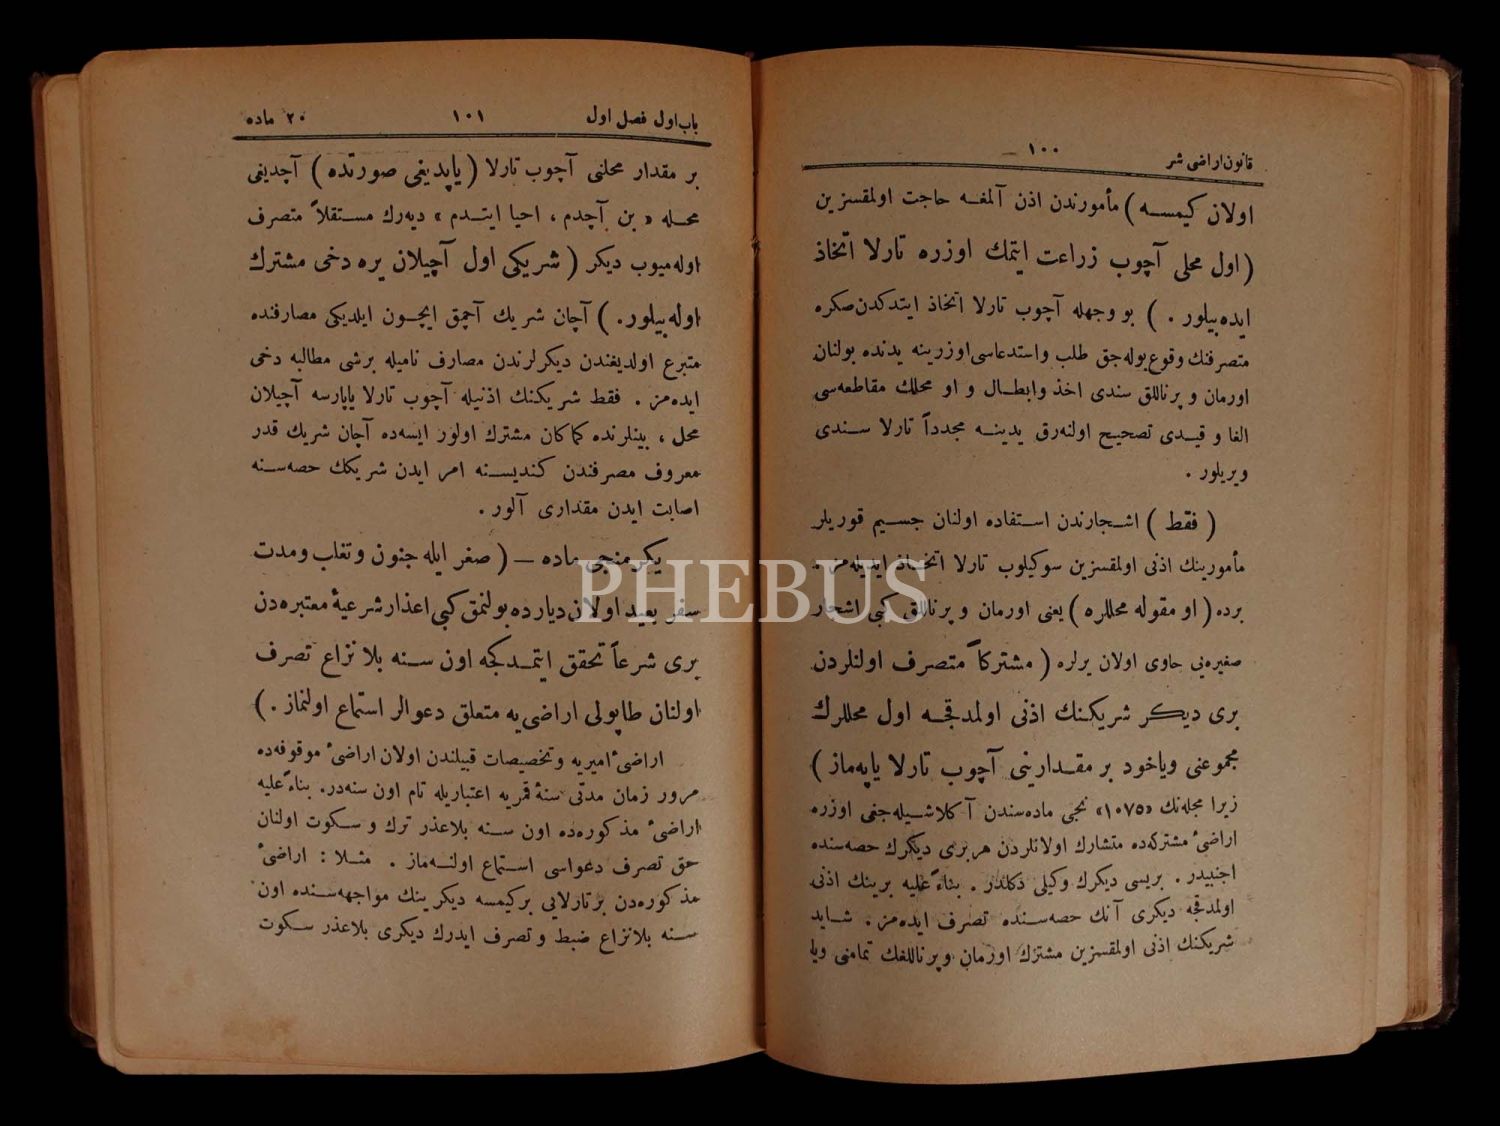 قانون اراضی شر
١٠٠
اولان كیمسه ) مأمورندن اذن آلمغه حاجت اولمقسزین
( اول محلی آچوب زراعت ایتمك اوزره تارلا اتخاذ
ایده بیلور . ) بو وجهله آچوب تارلا اتخاذ ایتدكدن صكره
متصرفنك وقوع بوله جق طلب و استدعاسی اوزرینه یدنده بولنان
اورمان و پرناللق سندی اخذ و ابطال و او محلك مقاطعه سی
الغا و قیدی تصحیح اولنه رق یدینه مجدداً تارلا سندی
ویریلور .
( فقط ) اشجارندن استفاده اولنان جسیم قوریلر
مأمورینك اذنی اولمقسزین سوكیلوب تارلا اتخاذ ایدیله مز .
برده ( او مقوله محللره ) یعنی اورمان و پرناللق كبی اشجار
صغیره یی حاوی اولان یرلره ( مشتركاً متصرف اولنلردن
بری دیكر شریكنك اذنی اولمدقجه اول محللرك
مجموعنی ویاخود بر مقدارینی آچوب تارلا یاپه ماز )
زیرا مجله نك «١٠٧٥» نجی ماده سندن آكلاشیله جغی اوزره
اراضیٔ مشتركه ده متشارك اولانلردن هر بری دیكرك حصه سنده
اجنبیدر . بریسی دیكرك وكیلی دكلدر . بناءً علیه برینك اذنی
اولمدقجه دیكری آنك حصه سنده تصرف ایده مز . شاید
شریكنك اذنی اولمقسزین مشترك اورمان و پرناللغك تمامنی ویا
باب اول فصل اول
١٠١
٢٠ ماده
بر مقدار محلنی آچوب تارلا ( یاپدیغی صورتده ) آچدیغی
محله « بن آچدم ، احیا ایتدم » دیه رك مستقلاً متصرف
اوله میوب دیكر ( شریكی اول آچیلان یره دخی مشترك
اوله بیلور . ) آچان شریك آچمق ایچون ایلدیكی مصارفنده
متبرع اولدیغندن دیكرلرندن مصارف نامیله برشی مطالبه دخی
ایده مز . فقط شریكنك اذنیله آچوب تارلا یاپارسه آچیلان
محل ، بینلرنده كماكان مشترك اولور ایسه ده آچان شریك قدر
معروف مصرفندن كندیسنه امر ایدن شریكك حصه سنه
اصابت ایدن مقداری آلور .
یكرمنجی ماده — ( صغر ایله جنون و تغلب و مدت
سفر بعید اولان دیارده بولنمق كبی اعذار شرعیهٔ معتبره دن
بری شرعاً تحقق ایتمدكجه اون سنه بلا نزاع تصرف
اولنان طاپولی اراضی یه متعلق دعوالر استماع اولنماز . )
اراضیٔ امیریه و تخصیصات قبیلندن اولان اراضیٔ موقوفه ده
مرور زمان مدتی سنهٔ قمریه اعتباریله تام اون سنه در . بناءً علیه
اراضیٔ مذكوره ده اون سنه بلاعذر ترك و سكوت اولنان
حق تصرف دعواسی استماع اولنه ماز . مثلا : اراضیٔ
مذكوره دن بر تارلایی بر كیمسه دیكرینك مواجهه سنده اون
سنه بلا نزاع ضبط و تصرف ایدرك دیكری بلاعذر سكوت
PHEBUS